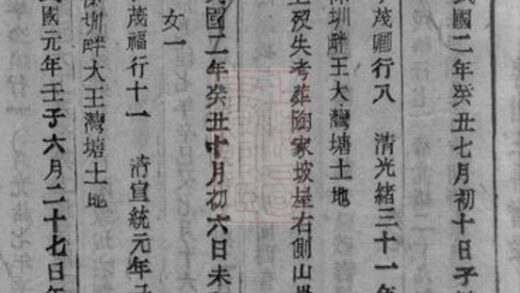 民國二年癸丑七月初十日子
茂園行八 清光緒三十一年
深圳畔王大灣塘土地
生歿失考葬陶家坡屋右側山
民國二年癸丑十月初六日未
女一
茂福行十一 清宣統元年
深圳畔大王灣塘土地
民國元年壬子六月二十七日午